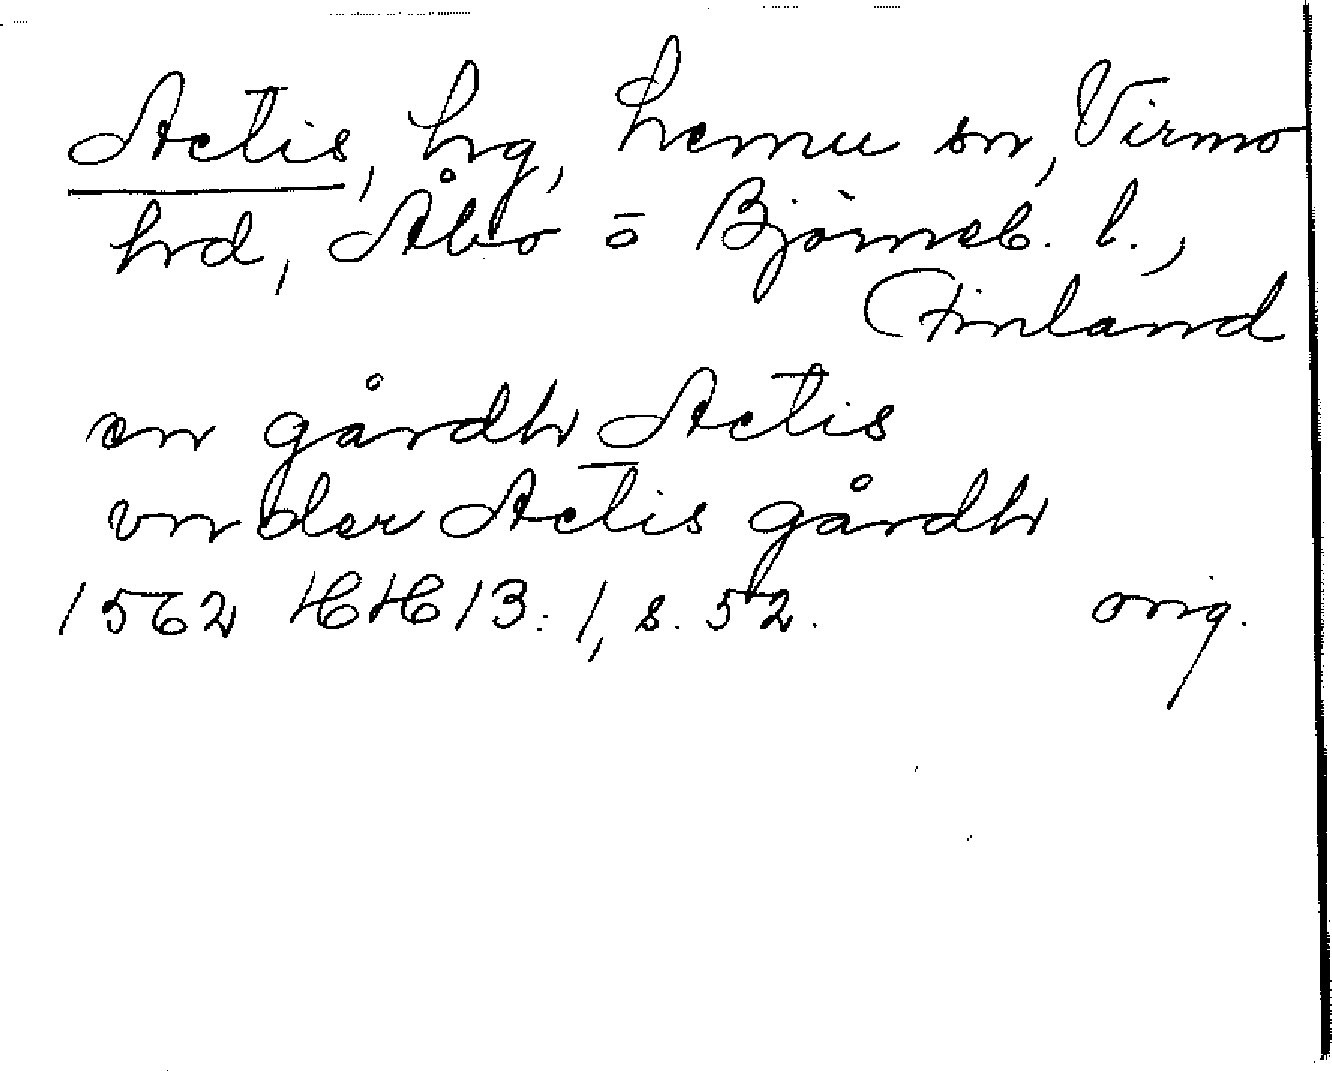 Actis, hg, Lemu sn, Virmo
hrd, Åbo o Björneb. l.,
Finland
en gårdh Actis
vnder Actis gårdh
1562 HH 13:1, s. 52. orig.